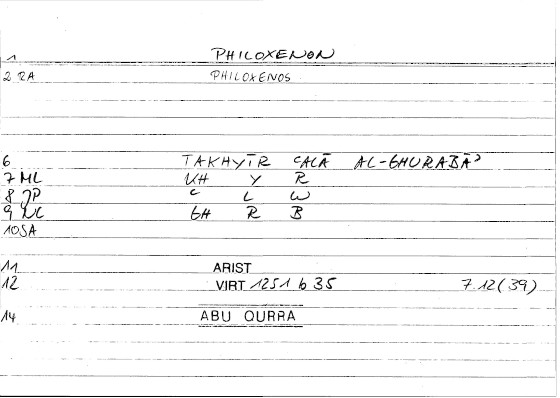 1 PHILOXENON
2 RA PHILOXENOS
6 TAKHYĪR ʿALĀ AL-GHURABĀʾ
7 ML KH Y R
8 JP ʿ L W
9 NC GH R B
10 SA
11 ARIST
12 VIRT 1251 b 35 7.12(39)
14 ABU QURRA